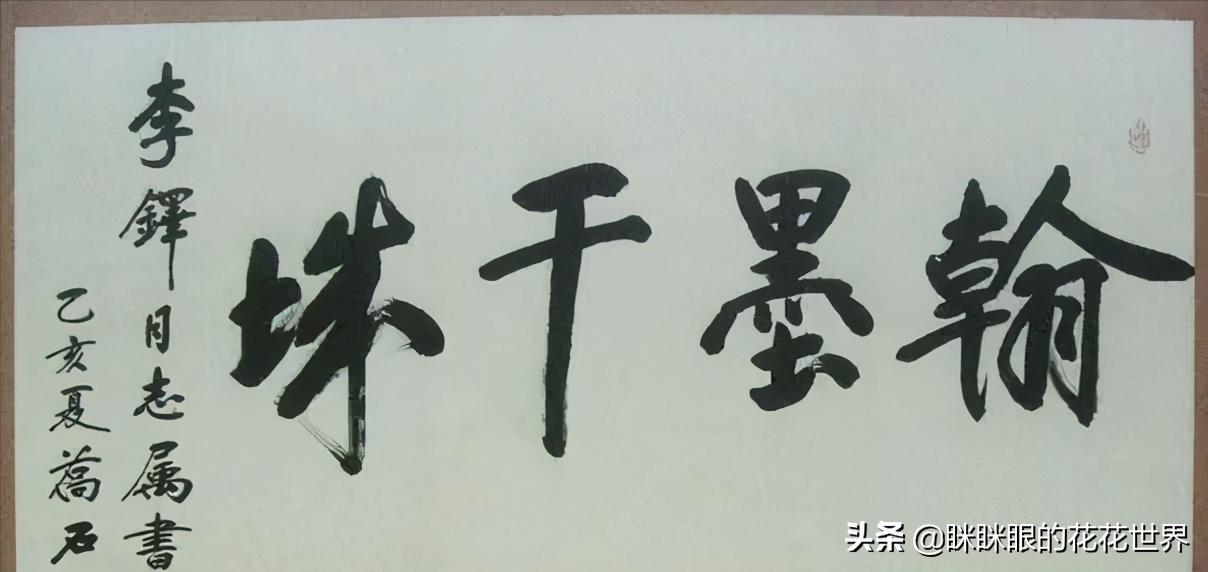 翰墨千秌
李鐸同志属書
乙亥夏喬石
头条 @眯眯眼的花花世界